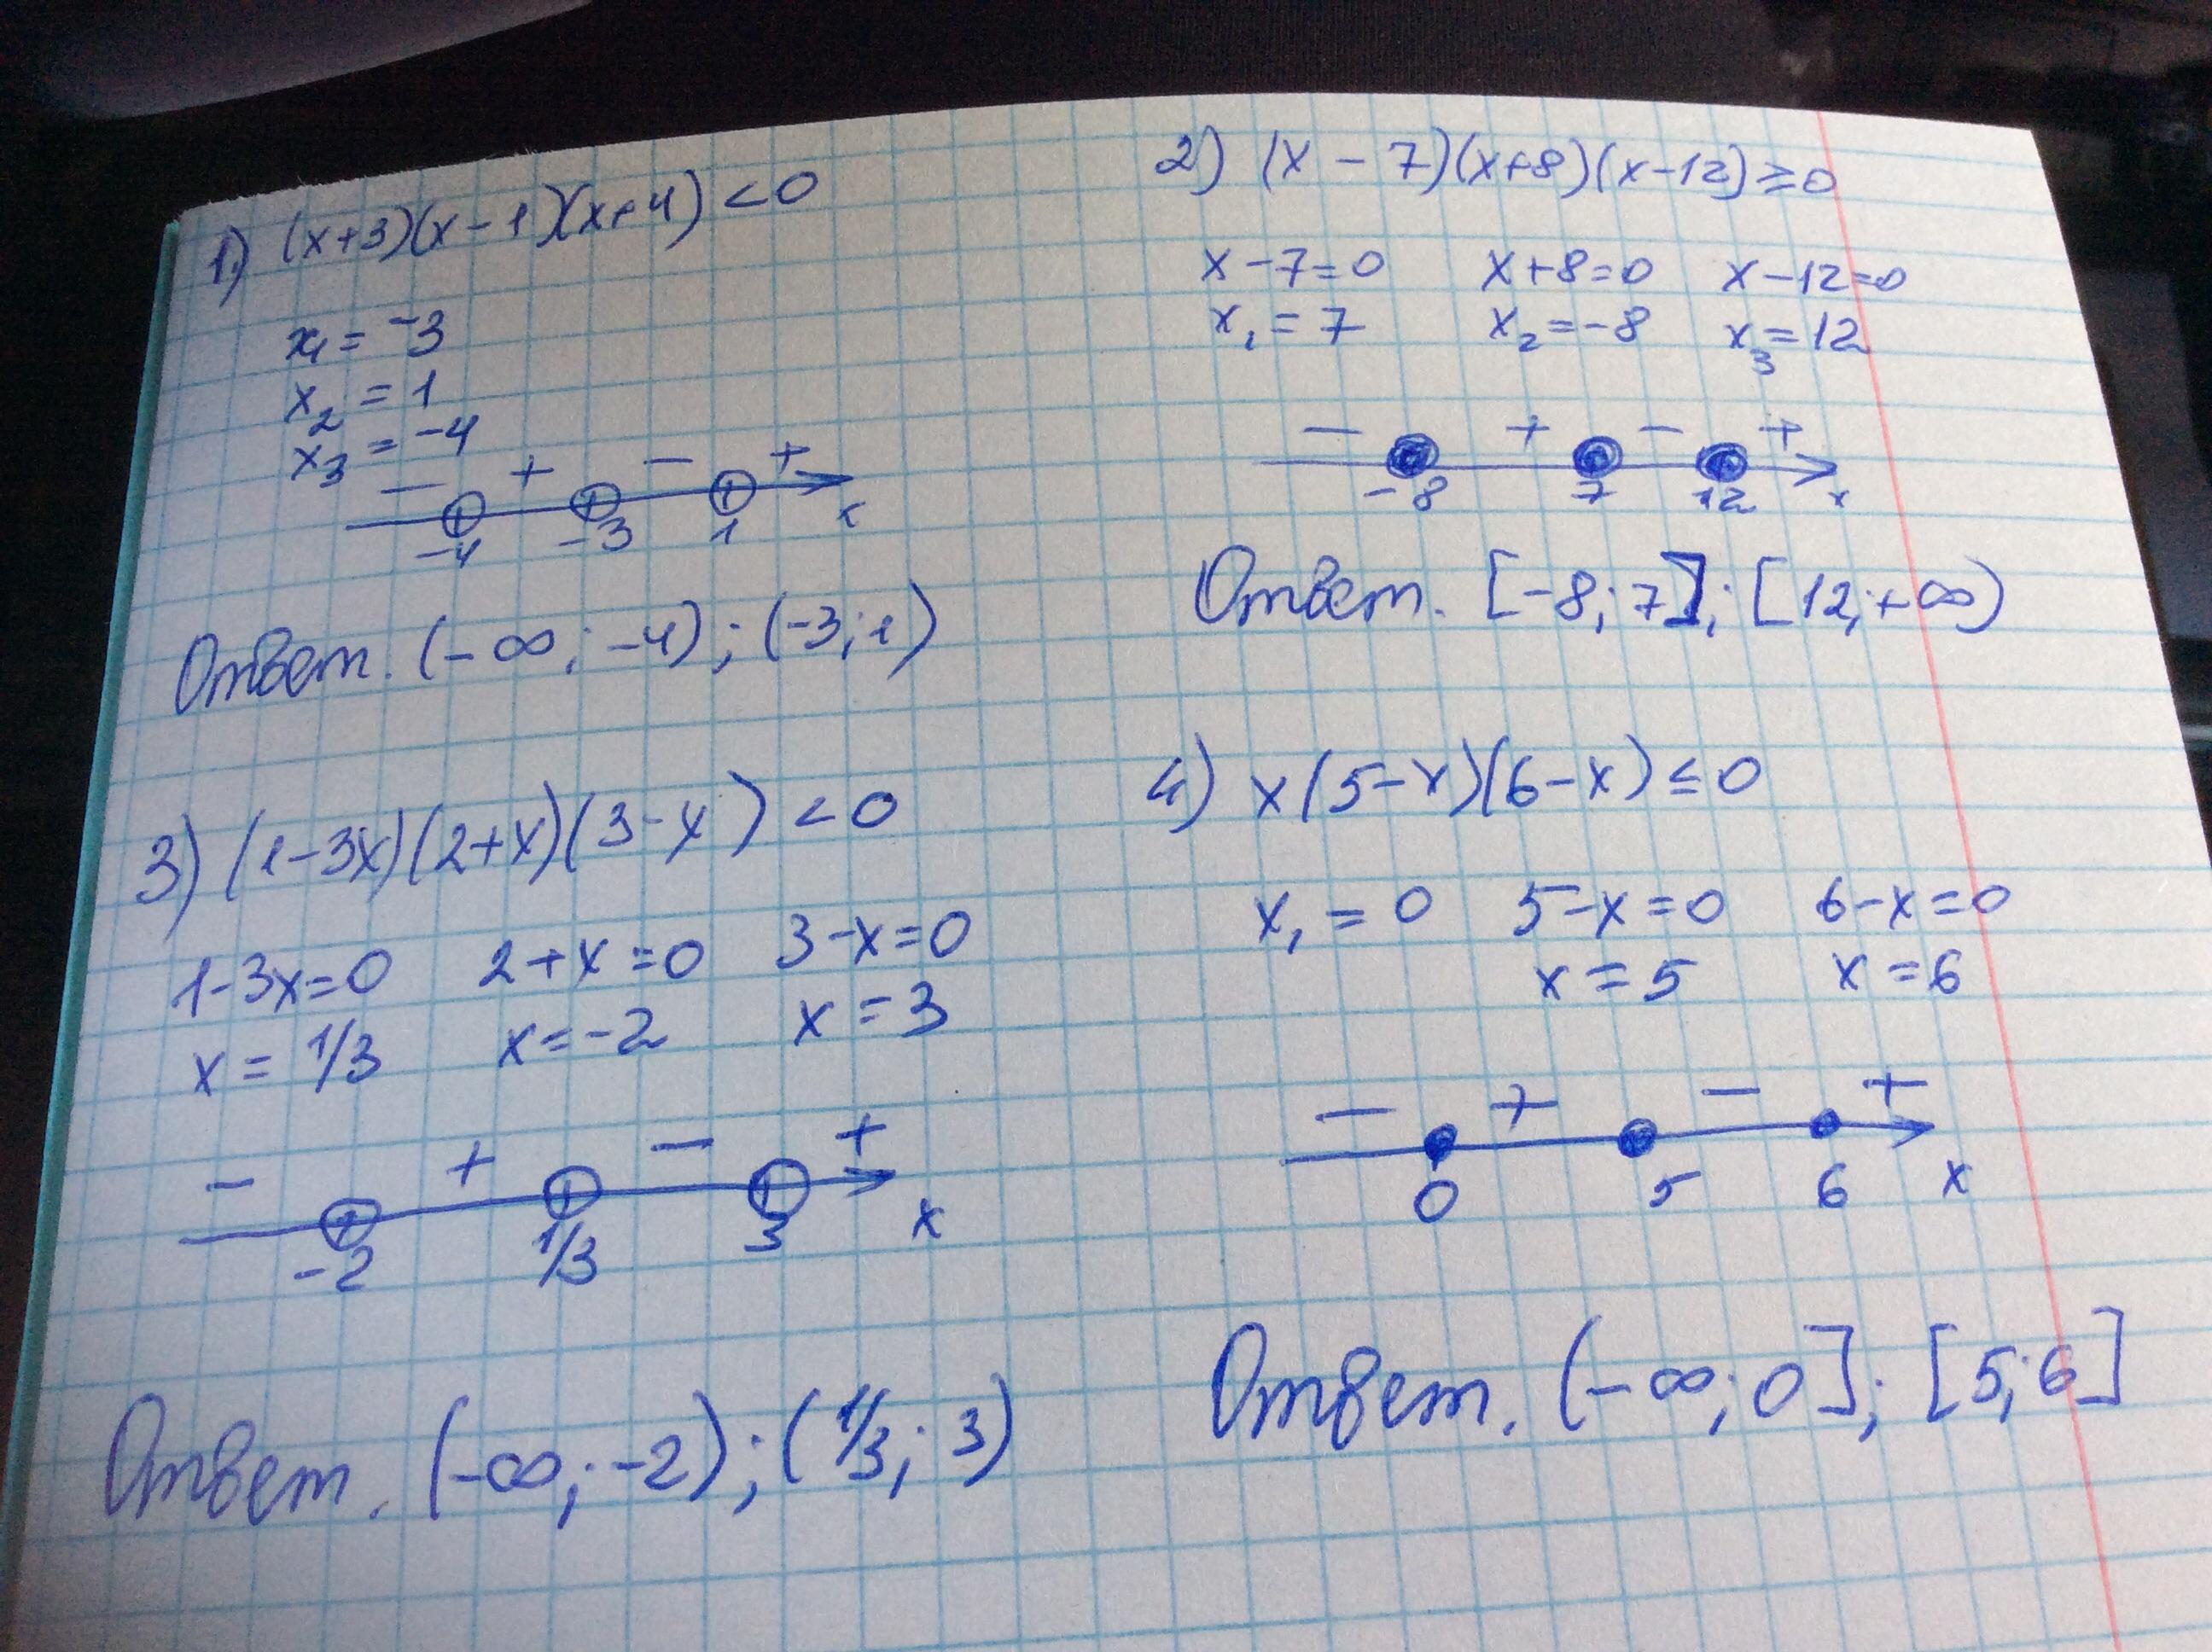 1) (x+3)(x-1)(x+4) <0
x₁ = -3
x₂ = 1
x₃ = -4
- + - +
-4 -3 1 x
Ответ. (-∞; -4); (-3; 1)
2) (x - 7)(x+8)(x-12) ≥0
x-7=0 x+8=0 x-12=0
x₁ = 7 x₂ =-8 x₃ = 12
- + - +
-8 7 12 x
Ответ. [-8; 7]; [12; +∞)
3) (1-3x)(2+x)(3-x) <0
1-3x=0 2+x=0 3-x=0
x = 1/3 x=-2 x = 3
- + - +
-2 1/3 3 x
Ответ. (-∞; -2); (1/3; 3)
4) x(5-x)(6-x) ≤0
x₁ = 0 5-x=0 6-x=0
x = 5 x =6
- + - +
0 5 6 x
Ответ. (-∞; 0]; [5; 6]